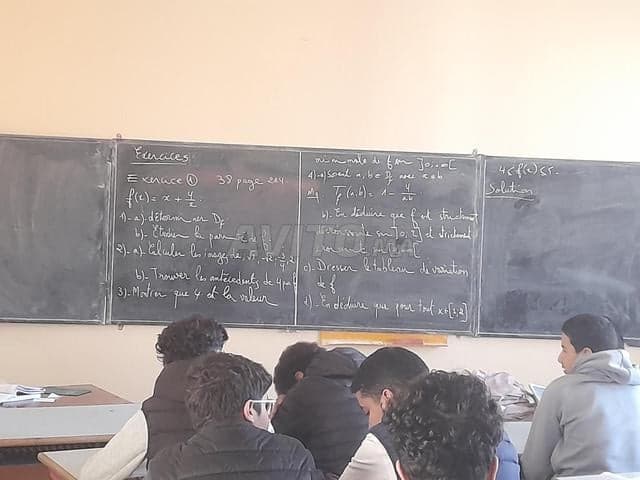 Exercices:
Exercice ① 38 page 214
f(x) = x + 4/x
1)-a) déterminer Df
b)- Etudier la parité
2)-a) Calculer les images de
b)- Trouver les antécédents de 4 par f
3)- Montrer que 4 est la valeur
minimale de f sur ]0;+∞[
4)-a) Soient a, b ∈ Df avec a≠b
Mq Tf(a,b) = 1 - 4/ab
b)- En déduire que f est strictement
sur ]0;2] et strictement
c)- Dresser le tableau de variation
de f
d)- En déduire que pour tout x∈[1;2]
4≤f(x)≤5
Solution
AVITO.ma